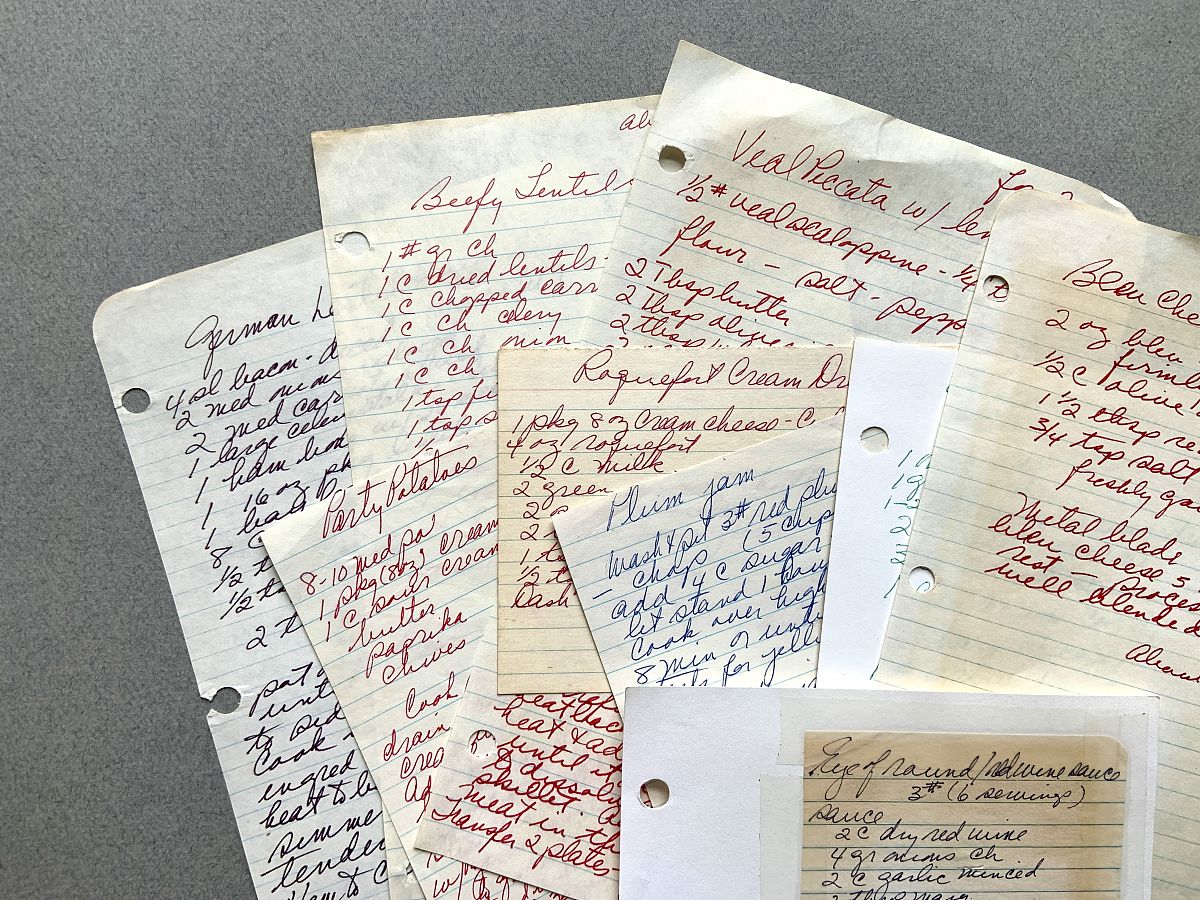 German
4 sl bacon -
2 med onions
2 med car
1 large celer
1 ham bon
1 16 oz pk
1 bay
8 c
1/2 t
1/2 t
2 t
put
unt
to sid
Cook -
ingred
heat to b
simmer
tender
Beefy Lentils
1 # gr ch
1 c dried lentils -
1 c chopped carr
1 c ch celery
1 c ch onion
1 c ch
1 tsp
1 tsp s
Veal Piccata w/ lem
1/2 # veal scaloppine - 1/4
flour - salt - pepp
2 Tbsp butter
2 Tbsp olive
2 tbsp
Bleu Che
2 oz bleu
firml
1/2 c olive
1 1/2 tbsp re
3/4 tsp salt
freshly g
Metal blade
bleu cheese 5
rest - proces
well blended
Party Potatoes
8-10 med po
1 pkg (8oz) cream
1 c sour cream
butter
paprika
chives
Cook
drain
crea
Ad
Roquefort Cream Dr
1 pkg 8 oz cream cheese -
4 oz roquefort
1/2 c milk
2 green
2
2
1 t
1/2 t
Dash
Plum jam
Wash & pit 3# red plu
- chop (5 cups
add 4 c sugar
let stand 1 hour
Cook over high
8 min or unti
for jell
heat & ad
until it
to dissolv
skillet.
meat in th
Transfer 2 plates
Eye of round/red wine sauce
3# (6 servings)
sauce
2 c dry red wine
4 gr onions ch
2 c garlic minced